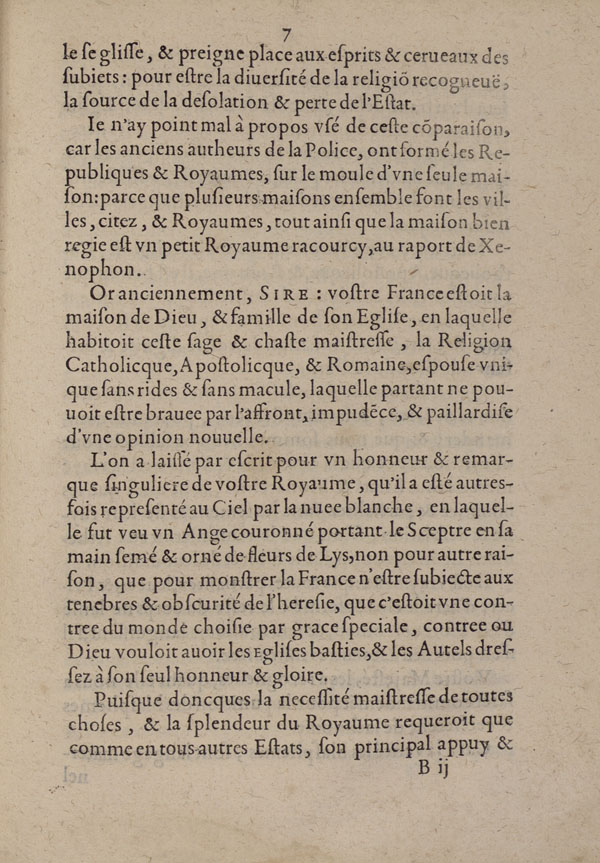 7
le ſe gliſſe, & preigne place aux eſprits & cerueaux des
ſubiets: pour eſtre la diuerſité de la religiõ recogneuë,
la ſource de la deſolation & perte de l'Eſtat.
Ie n'ay point mal à propos vſé de ceſte cõparaiſon,
car les anciens autheurs de la Police, ont formé les Re-
publiques & Royaumes, ſur le moule d'vne ſeule mai-
ſon: parce que pluſieurs maiſons enſemble font les vil-
les, citez, & Royaumes, tout ainſi que la maiſon bien
regie eſt vn petit Royaume racourcy, au raport de Xe-
nophon.
Or anciennement, SIRE : voſtre France eſtoit la
maiſon de Dieu, & famille de ſon Egliſe, en laquelle
habitoit ceſte ſage & chaſte maiſtreſſe, la Religion
Catholicque, Apoſtolicque, & Romaine, eſpouſe vni-
que ſans rides & ſans macule, laquelle partant ne pou-
uoit eſtre brauee par l'affront, impudẽce, & paillardiſe
d'vne opinion nouuelle.
L'on a laiſſé par eſcrit pour vn honneur & remar-
que ſinguliere de voſtre Royaume, qu'il a eſté autres-
fois repreſenté au Ciel par la nuee blanche, en laquel-
le fut veu vn Ange couronné portant le Sceptre en ſa
main ſemé & orné de fleurs de Lys, non pour autre rai-
ſon, que pour monſtrer la France n'eſtre ſubiecte aux
tenebres & obſcurité de l'hereſie, que c'eſtoit vne con-
tree du monde choiſie par grace ſpeciale, contree ou
Dieu vouloit auoir les Egliſes baſties, & les Autels dreſ-
ſez à ſon ſeul honneur & gloire.
Puiſque doncques la neceſſité maiſtreſſe de toutes
choſes, & la ſplendeur du Royaume requeroit que
comme en tous autres Eſtats, ſon principal appuy &
B ij